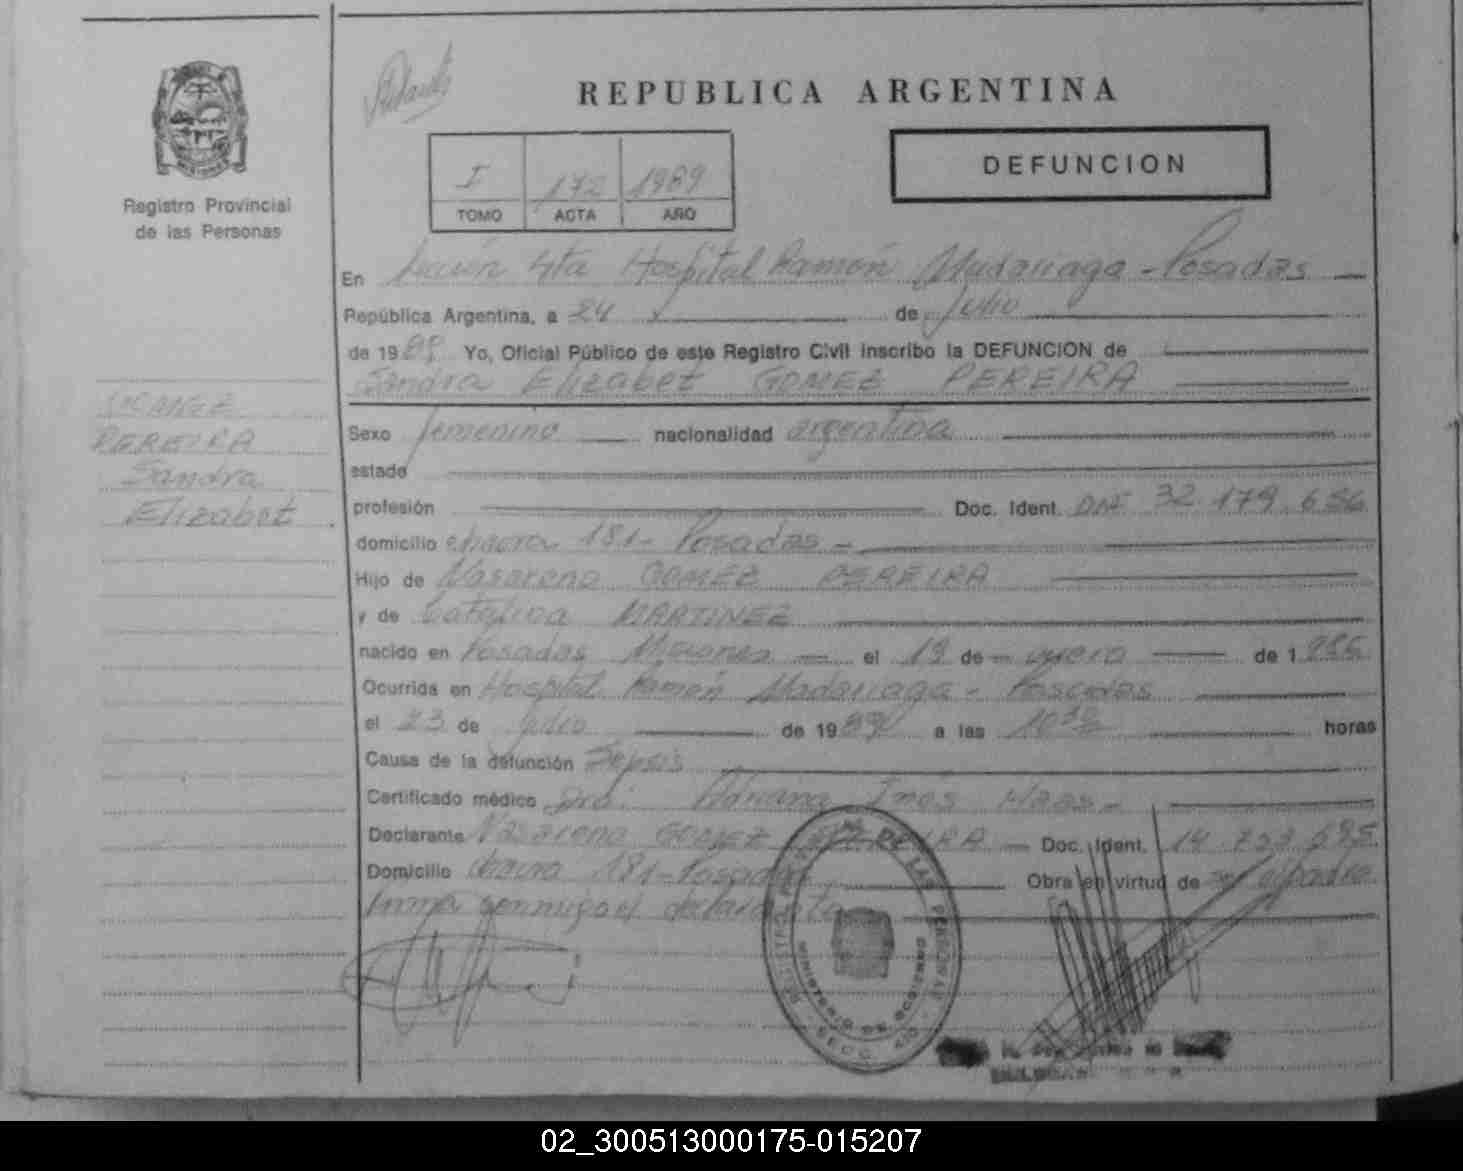 REPUBLICA ARGENTINA
I 172 1989
TOMO ACTA AÑO
DEFUNCION
Registro Provincial
de las Personas
En Sección 4ta Hospital Ramón Madariaga - Posadas
República Argentina, a 24 de Julio
de 1989 Yo, Oficial Público de este Registro Civil inscribo la DEFUNCION de
Sandra Elizabet GOMEZ PEREIRA
PEREIRA
Sandra
Elizabet
Sexo femenino nacionalidad argentina
estado
profesión Doc. Ident. DNI 32.179.656
domicilio chacra 181- Posadas -
Hijo de Nasareno GOMEZ PEREIRA
y de Catalina MARTINEZ
nacido en Posadas Misiones el 19 de enero de 1.986
Ocurrida en Hospital Ramón Madariaga - Posadas
el 23 de julio de 1989 a las 10 horas
Causa de la defunción Sepsis
Certificado médico Dra. Adriana Inés Haas-
Declarante Nasareno GOMEZ PEREIRA Doc. Ident. 14.733.595
Domicilio chacra 181-Posadas Obra en virtud de ser el padre
Firma conmigo el declarante
REGISTRO PROV. DE LAS PERSONAS
MINISTERIO DE GOBIERNO
SECC. 4TA
02_300513000175-015207